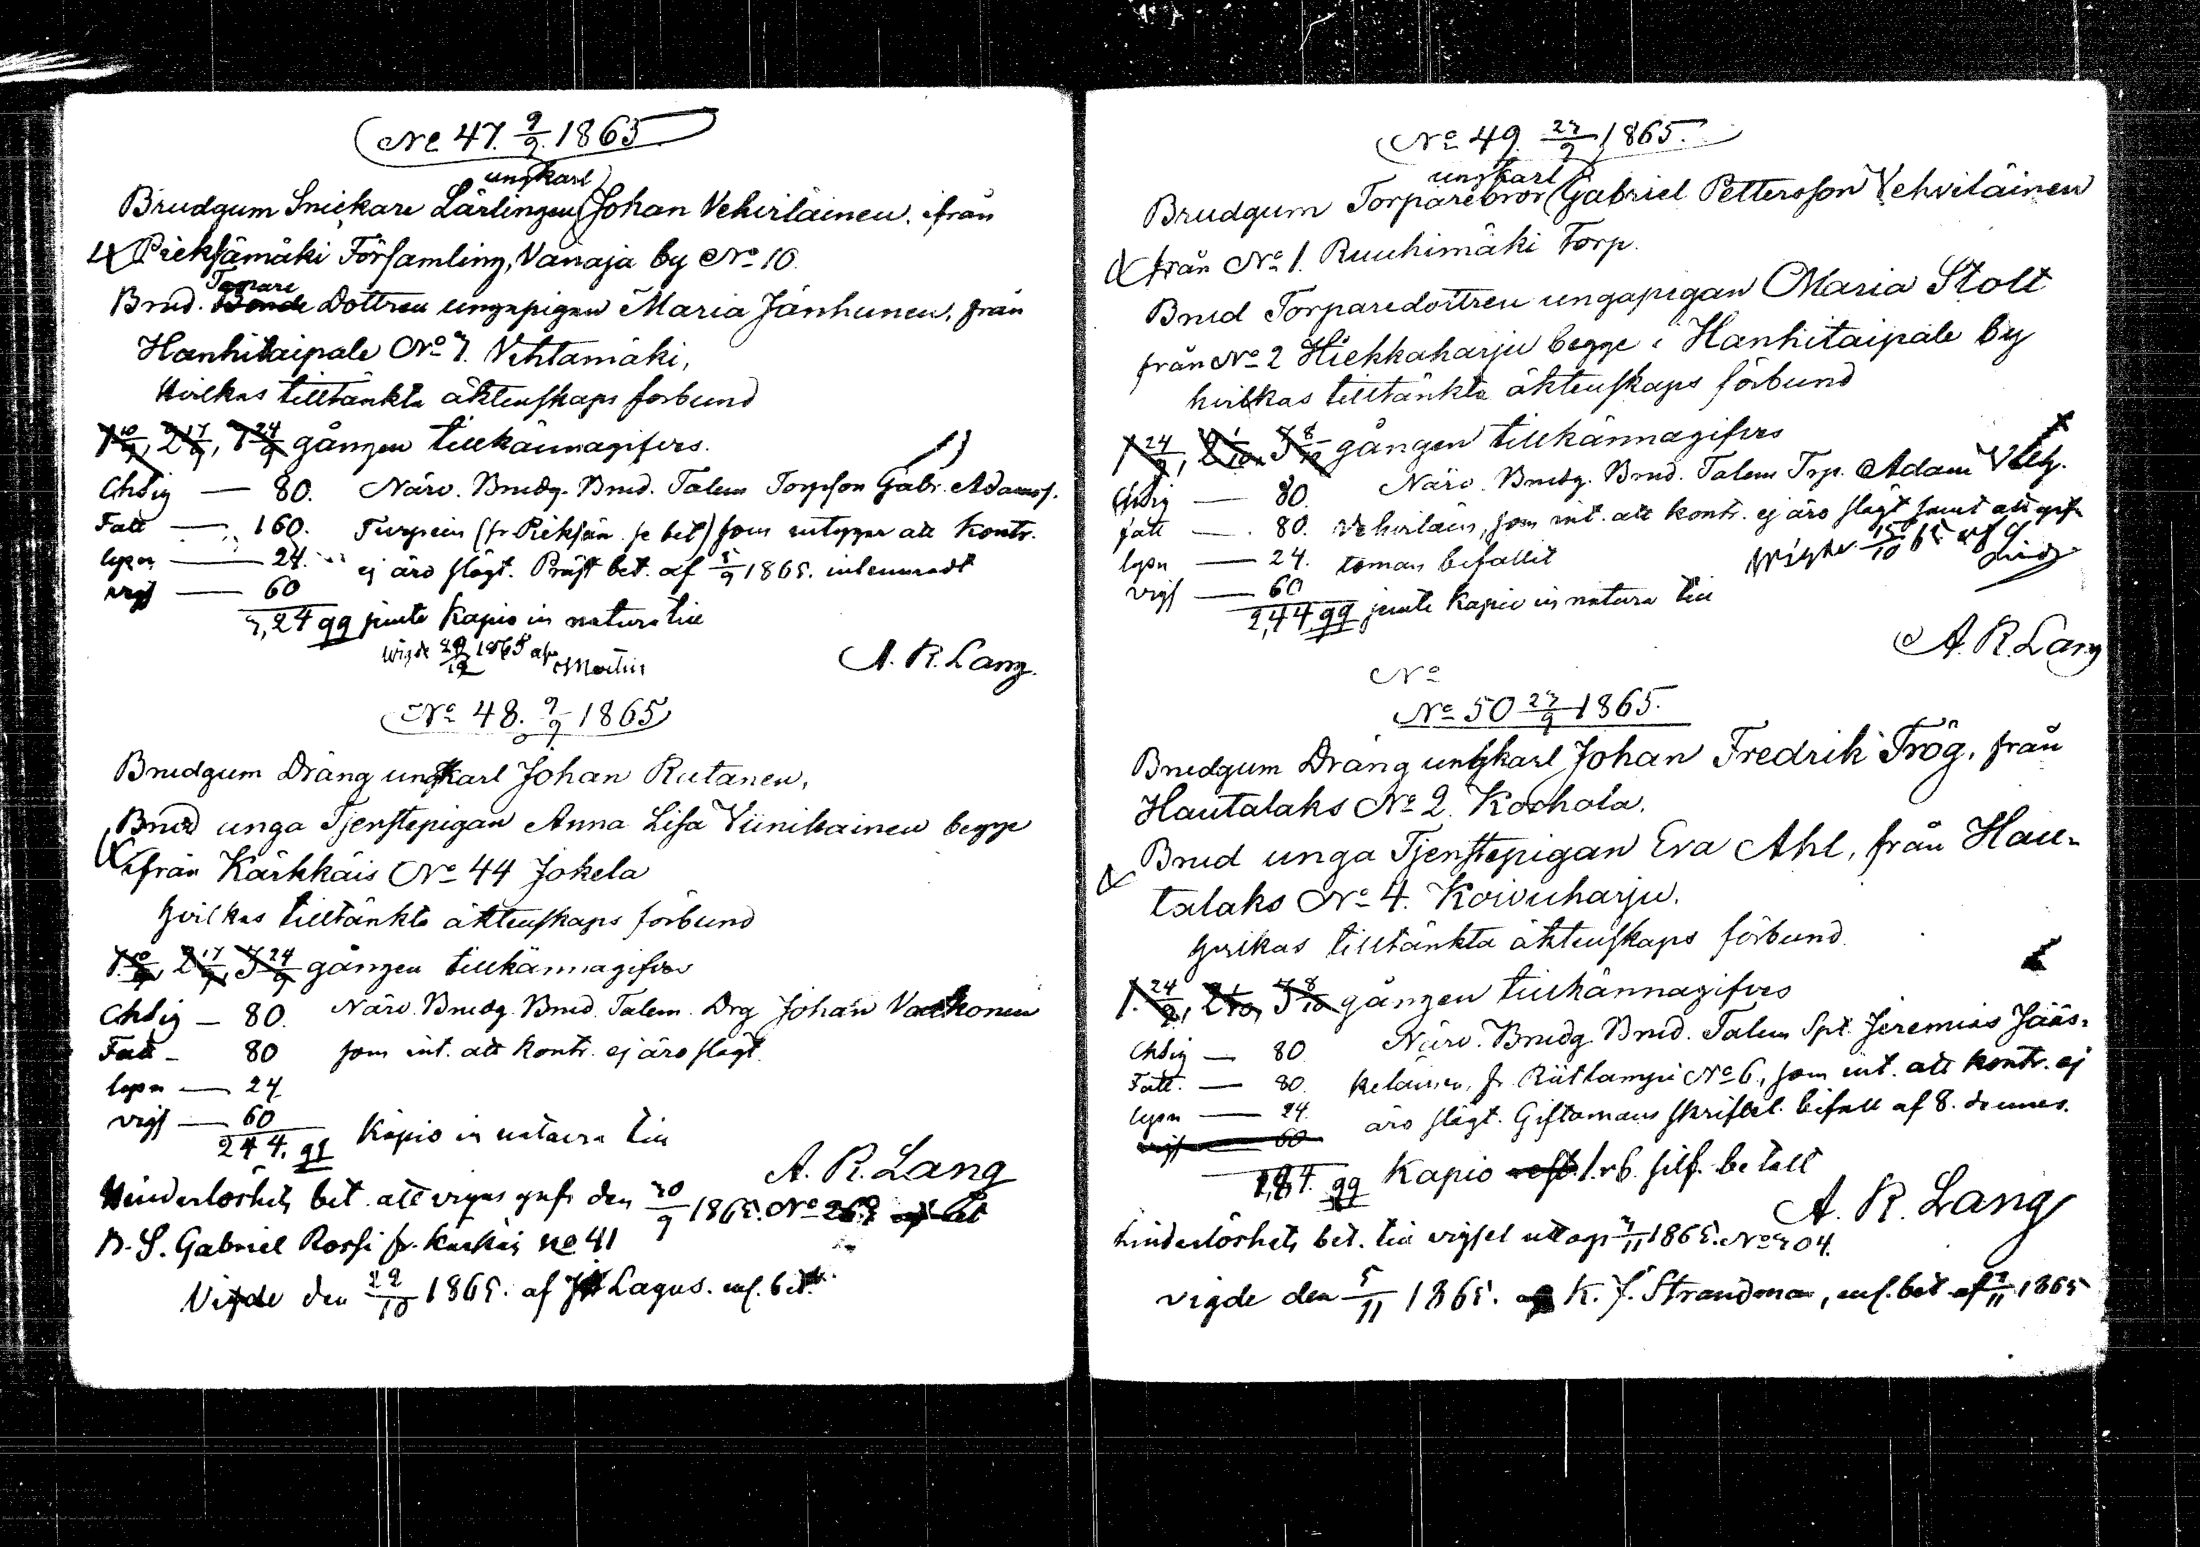 No 47. 9/9 1865
ungkarl
Brudgum Snickare Lärlingen Johan Vehviläinen. ifrån
Pieksämäki Församling, Vanaja by No 10.
Torpare
Brud. Bonde Dottren ungapigan Maria Jänhunen, från
Hanhitaipale No 7. Vehtamäki,
Hvilkas tilltänkta äktenskaps forbund
1 10/9, 2 17/9, 3 24/9 gången tillkännagifves.
80. Närv. Brudg. Brud. Talem Torpson Gabr. Adamss.
Fatt — 160. Turpein (fr Pieksäm. se bet) som intygar att Kontr.
lysn — 24. ej äro slägt. Präst bet. af 5/9 1865. inlemnadt
vigs — 60
3,24 gg jemte Kapio in natura till
Wigde 1865 af Martin
A. R. Lang.
No 48. 9/9 1865
Brudgum Dräng ungkarl Johan Rutanen,
Brud unga Tjenstepigan Anna Lisa Viinikainen begge
ifrån Kärkkäis No 44 Jokela
hvilkas tilltänkta äktenskaps förbund
1. 10/9, 2 17/9, 3 24/9 gången tillkännagifves
80. Närv. Brudg. Brud. Talem. Drg Johan
Fatt — 80 som int. att kontr. ej äro slägt.
lysn — 24
vigs — 60
244. gg Kapio in natura till
A. R. Lang
Hinderlöshets bet. att vigas gafs den 30/9 1865. No
B. S. Gabriel Rossi fr. Kärkäis no 41
Vigde den 29/10 1865. af Lagus. enl. bet.
No 49. 27/9 1865.
ungkarl
Brudgum Torparebror Gabriel Pettersson Vehviläinen
från No 1. Ruuhimäki Torp.
Brud Torparedottren ungapigan Maria Stolt
från No 2 Hiekkaharju begge i Hanhitaipale by
hvilkas tilltänkta äktenskaps förbund
1 24/9, 2 1/10, 3 8/10 gången tillkännagifves
80. Närv. Brudg. Brud. Talem Trp. Adam
fatt — 80. Vehviläin, som int. att kontr. ej äro slägt samt att gift
lysn — 24. toman befallit Wigde 15/10 65 af
vigs — 60
2,44 gg jemte Kapio in natura till
A. R. Lang
No
No 50 27/9 1865.
Brudgum Dräng ungkarl Johan Fredrik Trög, från
Hautalaks No 2. Kokkola.
Brud unga Tjenstepigan Eva Ahl, från Hau-
talaks No 4. Koivuharju.
hvilkas tilltänkta äktenskaps förbund
1. 24/9, 2 1/10, 3 8/10 gången tillkännagifves
80 Närv. Brudg. Brud. Talem Spt. Jeremias Jääs-
Fatt. — 80. keläinen, fr. Riitlampi No 6, som int. att kontr. ej
lysn — 24. äro slägt. Giftomans skriftl. bifall af 8. dennes.
vigs — 60
1,84. gg Kapio 1. rb. silf. betalt
A. R. Lang
hinderlöshets bet. till vigsel uttogs 3/11 1865. No 304.
vigde den 5/11 1865. af K. J. Strandman, enl. bet af 7/11 1865